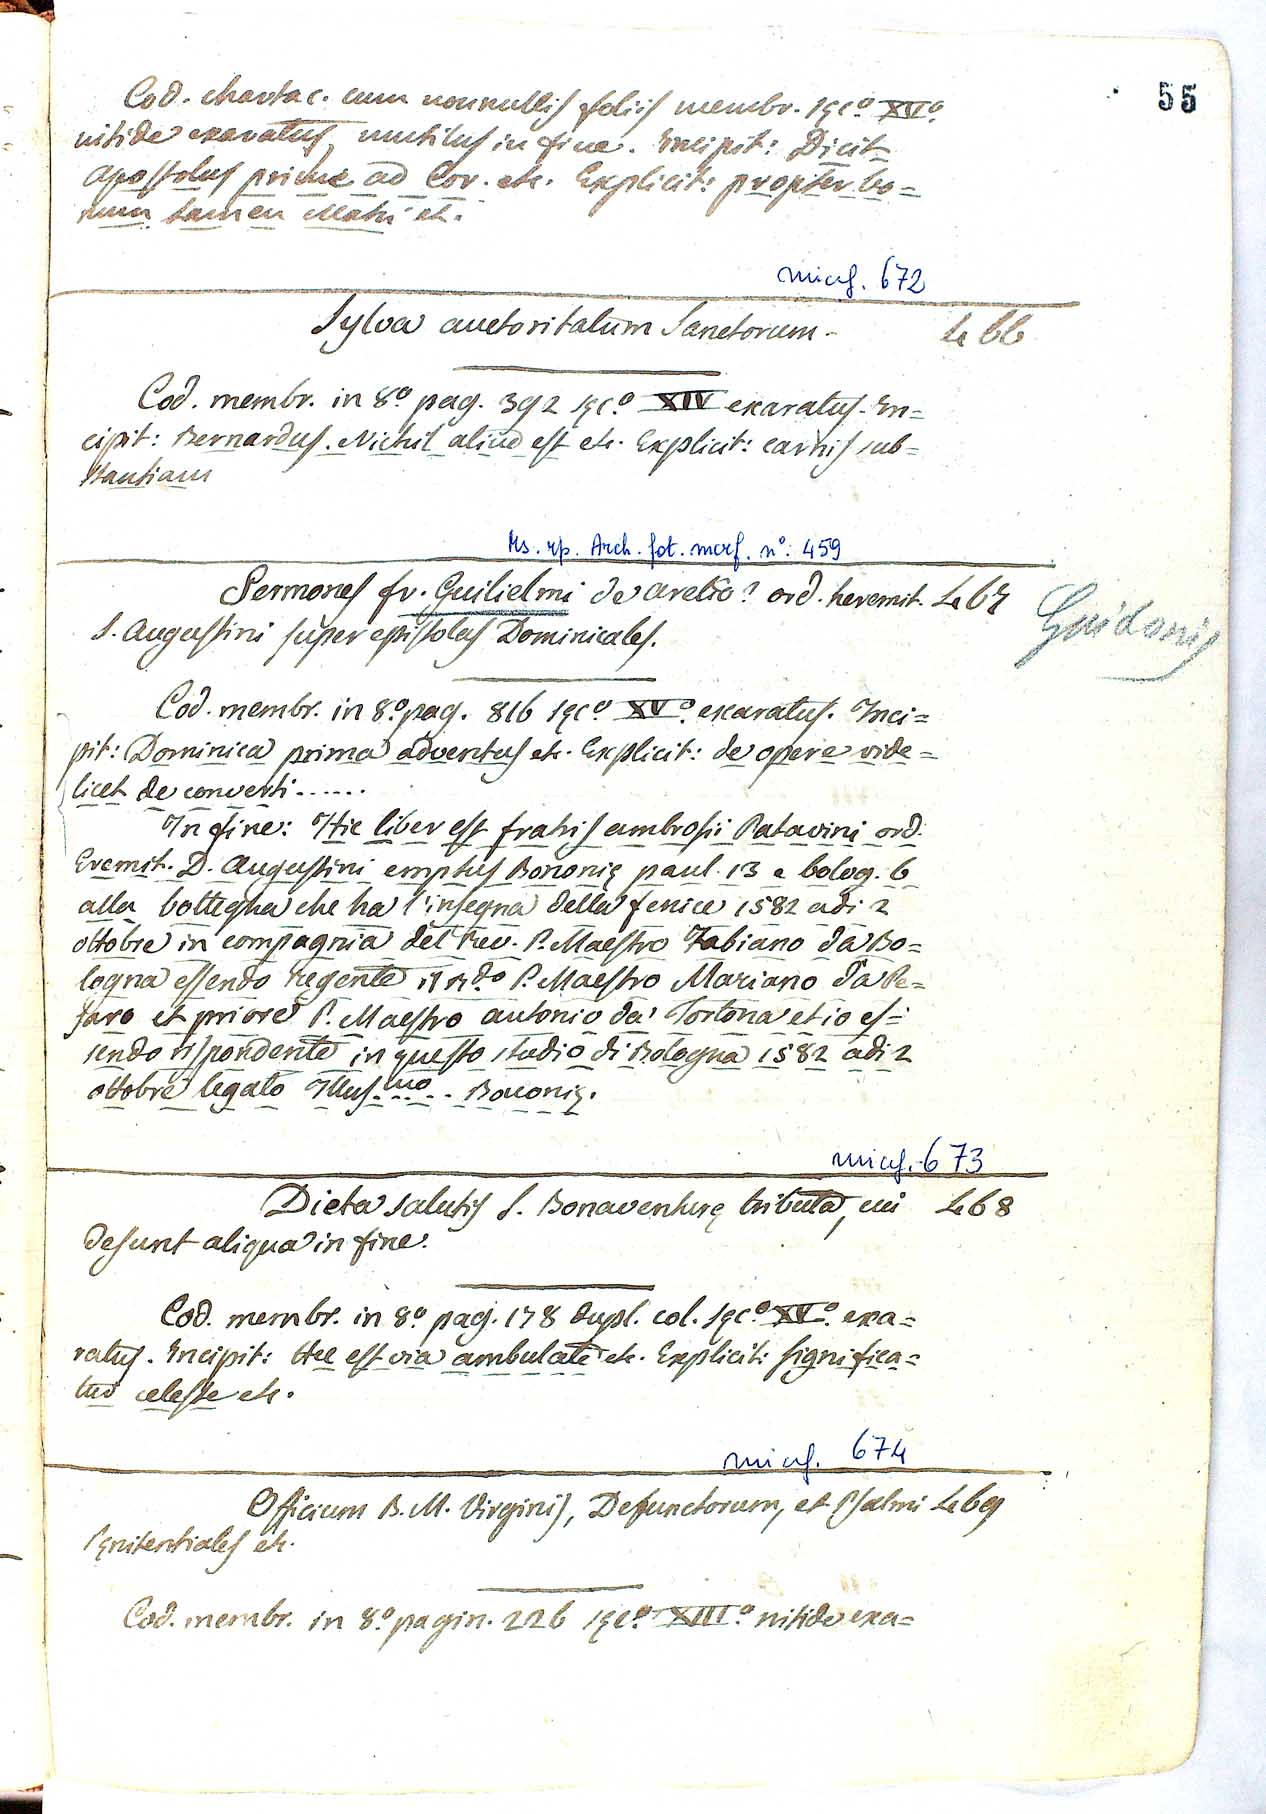 55
Cod. chartac. cum nonnullis foliis membr. sęc.º XVº
nitide exaratus, mutilus in fine. Incipit: Dicit
Apostolus prime ad Cor. etc. Explicit: propter bo=
num tamen Matri etc.
micrf. 672
Sylva auctoritatum Sanctorum. L. 66
Cod. membr. in 8º pag. 392 sęc.º XIV exaratus. In=
cipit: Bernardus. Nichil aliud est etc. Explicit: carnis sub=
stantiam
Ms. rip. Arch. fot. mcrf. nº: 459
Sermones fr. Guilielmi de aretio? ord. heremit. L. 67 Guidonis
S. Augustini super epistolas Dominicales.
Cod. membr. in 8º pag. 816 sęcº XVº exaratus. Inci=
pit: Dominica prima adventus etc. Explicit: de opere vide=
licet de converti......
In fine: Hic liber est fratris ambrosii Patavini ord.
Eremit. D. Augustini emptus Bononię paul. 13 e bolog. 6
alla bottegha che ha l'insegna della fenice 1582 adi 2
ottobre in compagnia del Rev. P. Maestro Fabiano da Bo=
logna essendo regente il Rdo P. Maestro Mariano da Pe=
saro et priore P. Maestro antonio da Tortona et io es=
sendo rispondente in questo studio di Bologna 1582 adi 2
ottobre legato Illus.mo... Bononię.
micrf. 673
Dieta salutis S. Bonaventurę tributa, cui L. 68
desunt aliqua in fine.
Cod. membr. in 8º pag. 178 dupl. col. sęcº XVº exa=
ratus. Incipit: Hec est via ambulate etc. Explicit: significa=
tur celeste etc.
micrf. 674
Officium B. M. Virginis, Defunctorum, et Psalmi L. 69
Pęnitentiales etc.
Cod. membr. in 8º pagin. 226 sęcº XIIIº nitide exa=